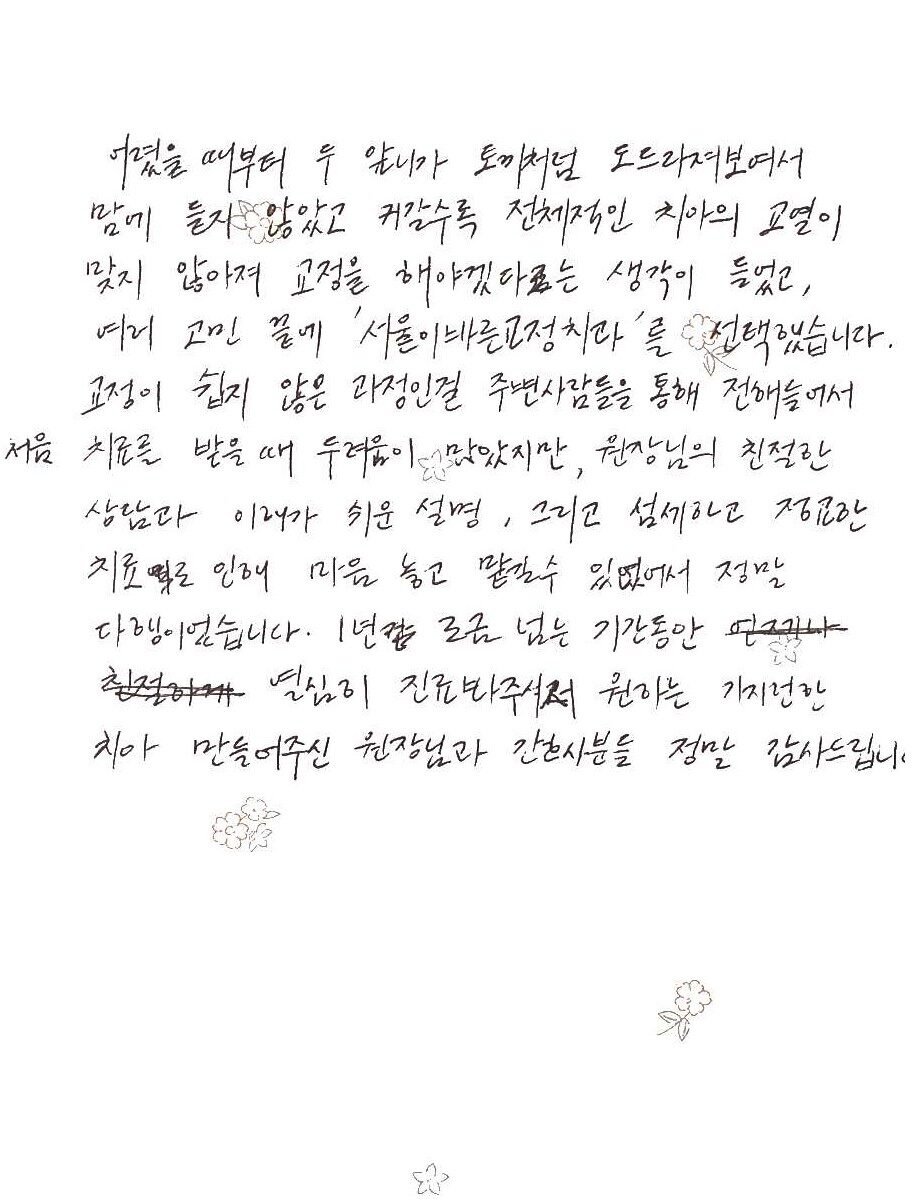 어렸을 때부터 두 앞니가 토끼처럼 도드라져보여서
맘에 들지 않았고 커갈수록 전체적인 치아의 교열이
맞지 않아져 교정을 해야겠다는 생각이 들었고,
여러 고민 끝에 '서울이바른교정치과'를 선택했습니다.
교정이 쉽지 않은 과정인걸 주변사람들을 통해 전해들어서
처음 치료를 받을 때 두려움이 많았지만, 원장님의 친절한
상담과 이해가 쉬운 설명, 그리고 섬세하고 정교한
치료로 인해 마음 놓고 맡길수 있었어서 정말
다행이었습니다. 1년 조금 넘는 기간동안 언제나
친절하게 열심히 진료봐주셔서 원하는 가지런한
치아 만들어주신 원장님과 간호사분들 정말 감사드립니